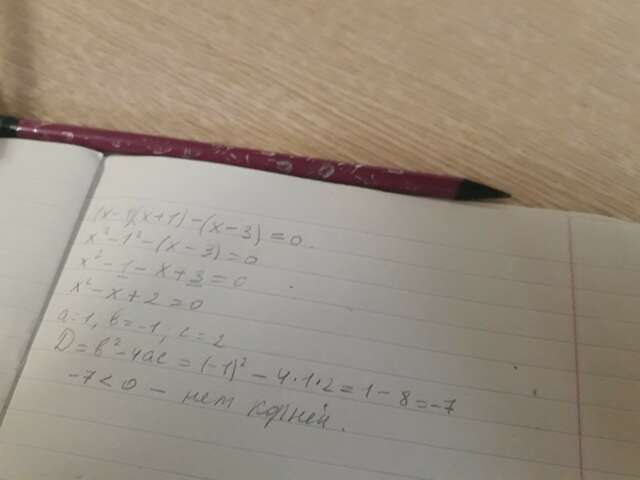 (x-1)(x+1)-(x-3)=0.
x²-1²-(x-3)=0
x²-1-x+3=0
x²-x+2=0
a=1, b=-1, c=2
D=b²-4ac=(-1)²-4·1·2=1-8=-7
-7<0 - нет корней.